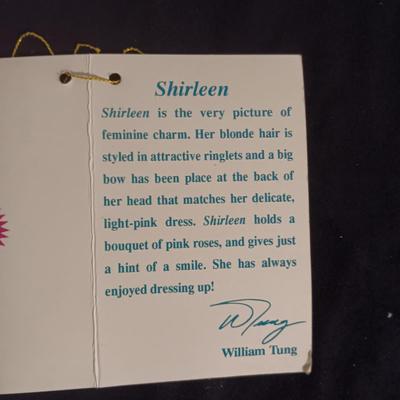 Shirleen
Shirleen is the very picture of
feminine charm. Her blonde hair is
styled in attractive ringlets and a big
bow has been place at the back of
her head that matches her delicate,
light-pink dress. Shirleen holds a
bouquet of pink roses, and gives just
a hint of a smile. She has always
enjoyed dressing up!
W Tung
William Tung